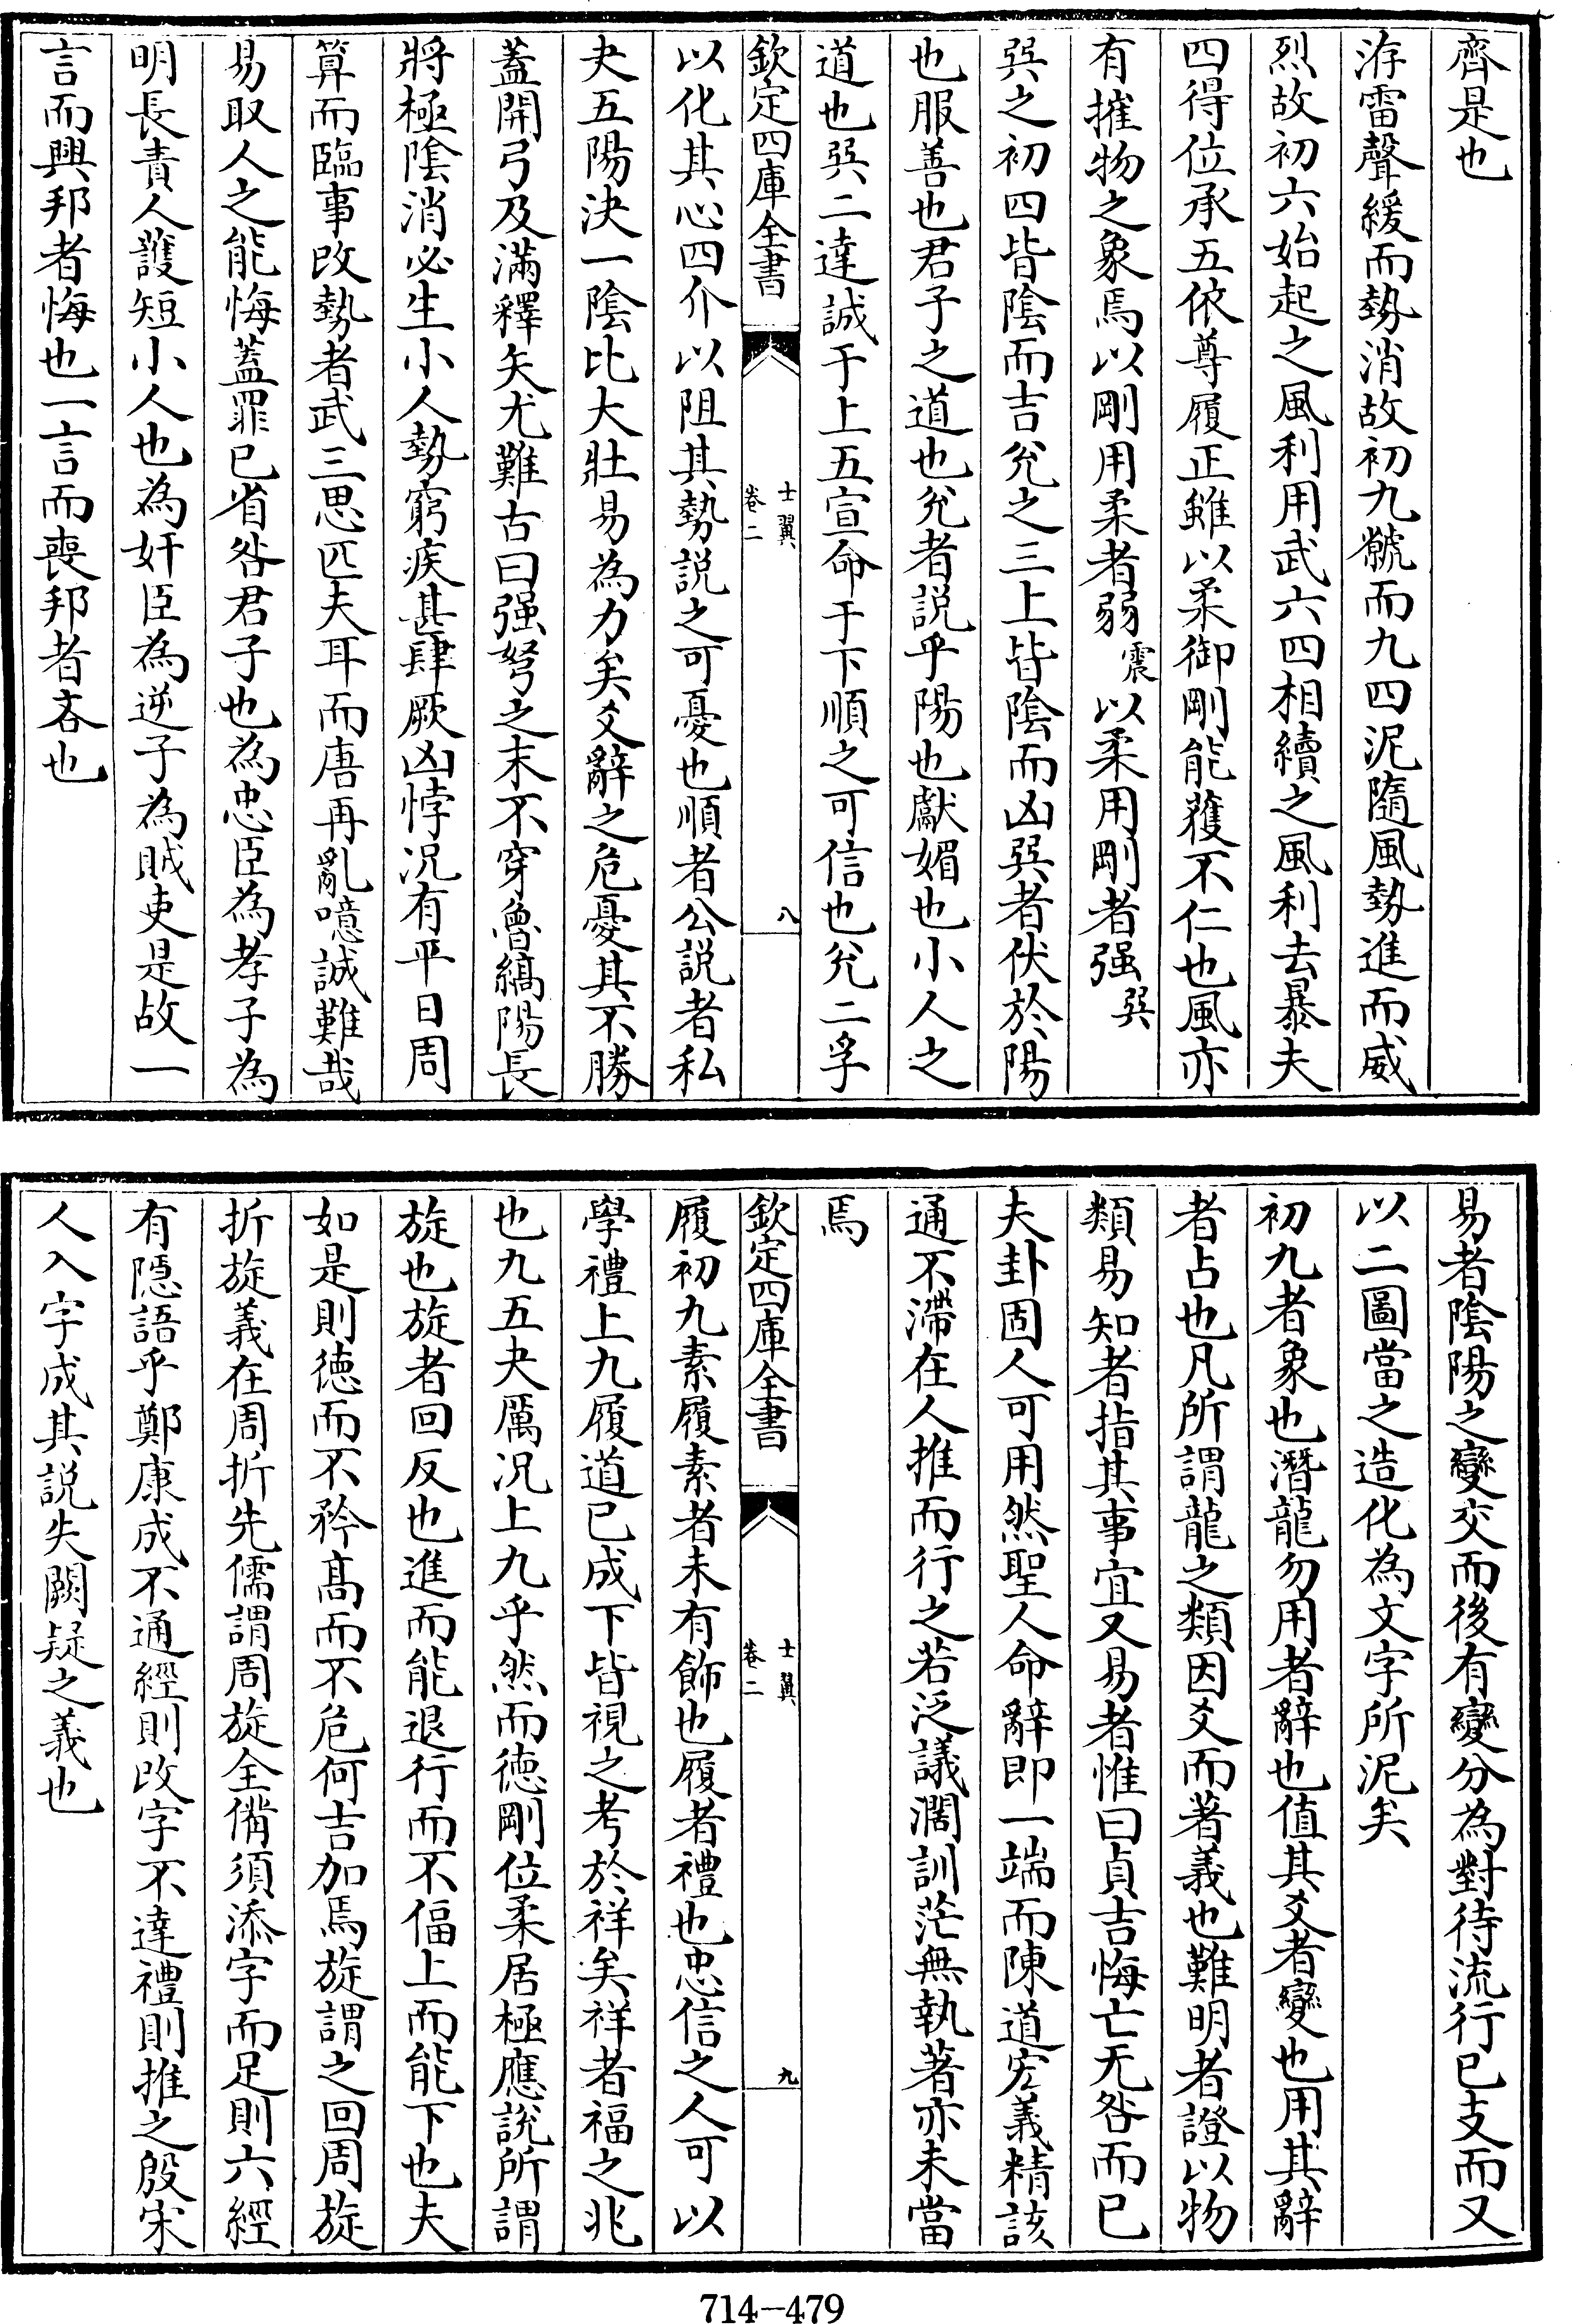 齊是也
洊雷聲緩而勢消故初九虩而九四泥隨風勢進而威
烈故初六始起之風利用武六四相續之風利去暴夫
四得位承五依尊履正雖以柔御剛能獲不仁也風亦
有摧物之象焉以剛用柔者弱震以柔用剛者强巽
巽之初四皆陰而吉兊之三上皆陰而凶巽者伏於陽
也服善也君子之道也兊者説乎陽也獻媚也小人之
道也巽二達誠于上五宣命于下順之可信也兊二孚
欽定四庫全書
士翼
卷二
八
以化其心四介以阻其勢説之可憂也順者公説者私
夬五陽決一陰比大壯易為力矣爻辭之危憂其不勝
蓋開弓及滿釋矢尤難古曰强弩之末不穿魯縞陽長
將極陰消必生小人勢窮疾甚肆厥凶悖况有平日周
算而臨事改勢者武三思匹夫耳而唐再亂噫誠難哉
易取人之能悔蓋罪已省咎君子也為忠臣為孝子為
明長責人護短小人也為奸臣為逆子為賊吏是故一
言而興邦者悔也一言而喪邦者吝也
易者陰陽之變交而後有變分為對待流行已支而又
以二圖當之造化為文字所泥矣
初九者象也潛龍勿用者辭也值其爻者變也用其辭
者占也凡所謂龍之類因爻而著義也難明者證以物
類易知者指其事宜又易者惟曰貞吉悔亡无咎而已
夫卦固人可用然聖人命辭即一端而陳道宏義精該
通不滯在人推而行之若泛議濶訓茫無執著亦未當
焉
欽定四庫全書
士翼
卷二
九
履初九素履素者未有飾也履者禮也忠信之人可以
學禮上九履道已成下皆視之考於祥矣祥者福之兆
也九五夬厲况上九乎然而徳剛位柔居極應說所謂
旋也旋者回反也進而能退行而不偪上而能下也夫
如是則徳而不矜髙而不危何吉加焉旋謂之回周旋
折旋義在周折先儒謂周旋全備須添字而足則六經
有隠語乎鄭康成不通經則改字不達禮則推之殷宋
人入字成其説失闕疑之義也
714-479